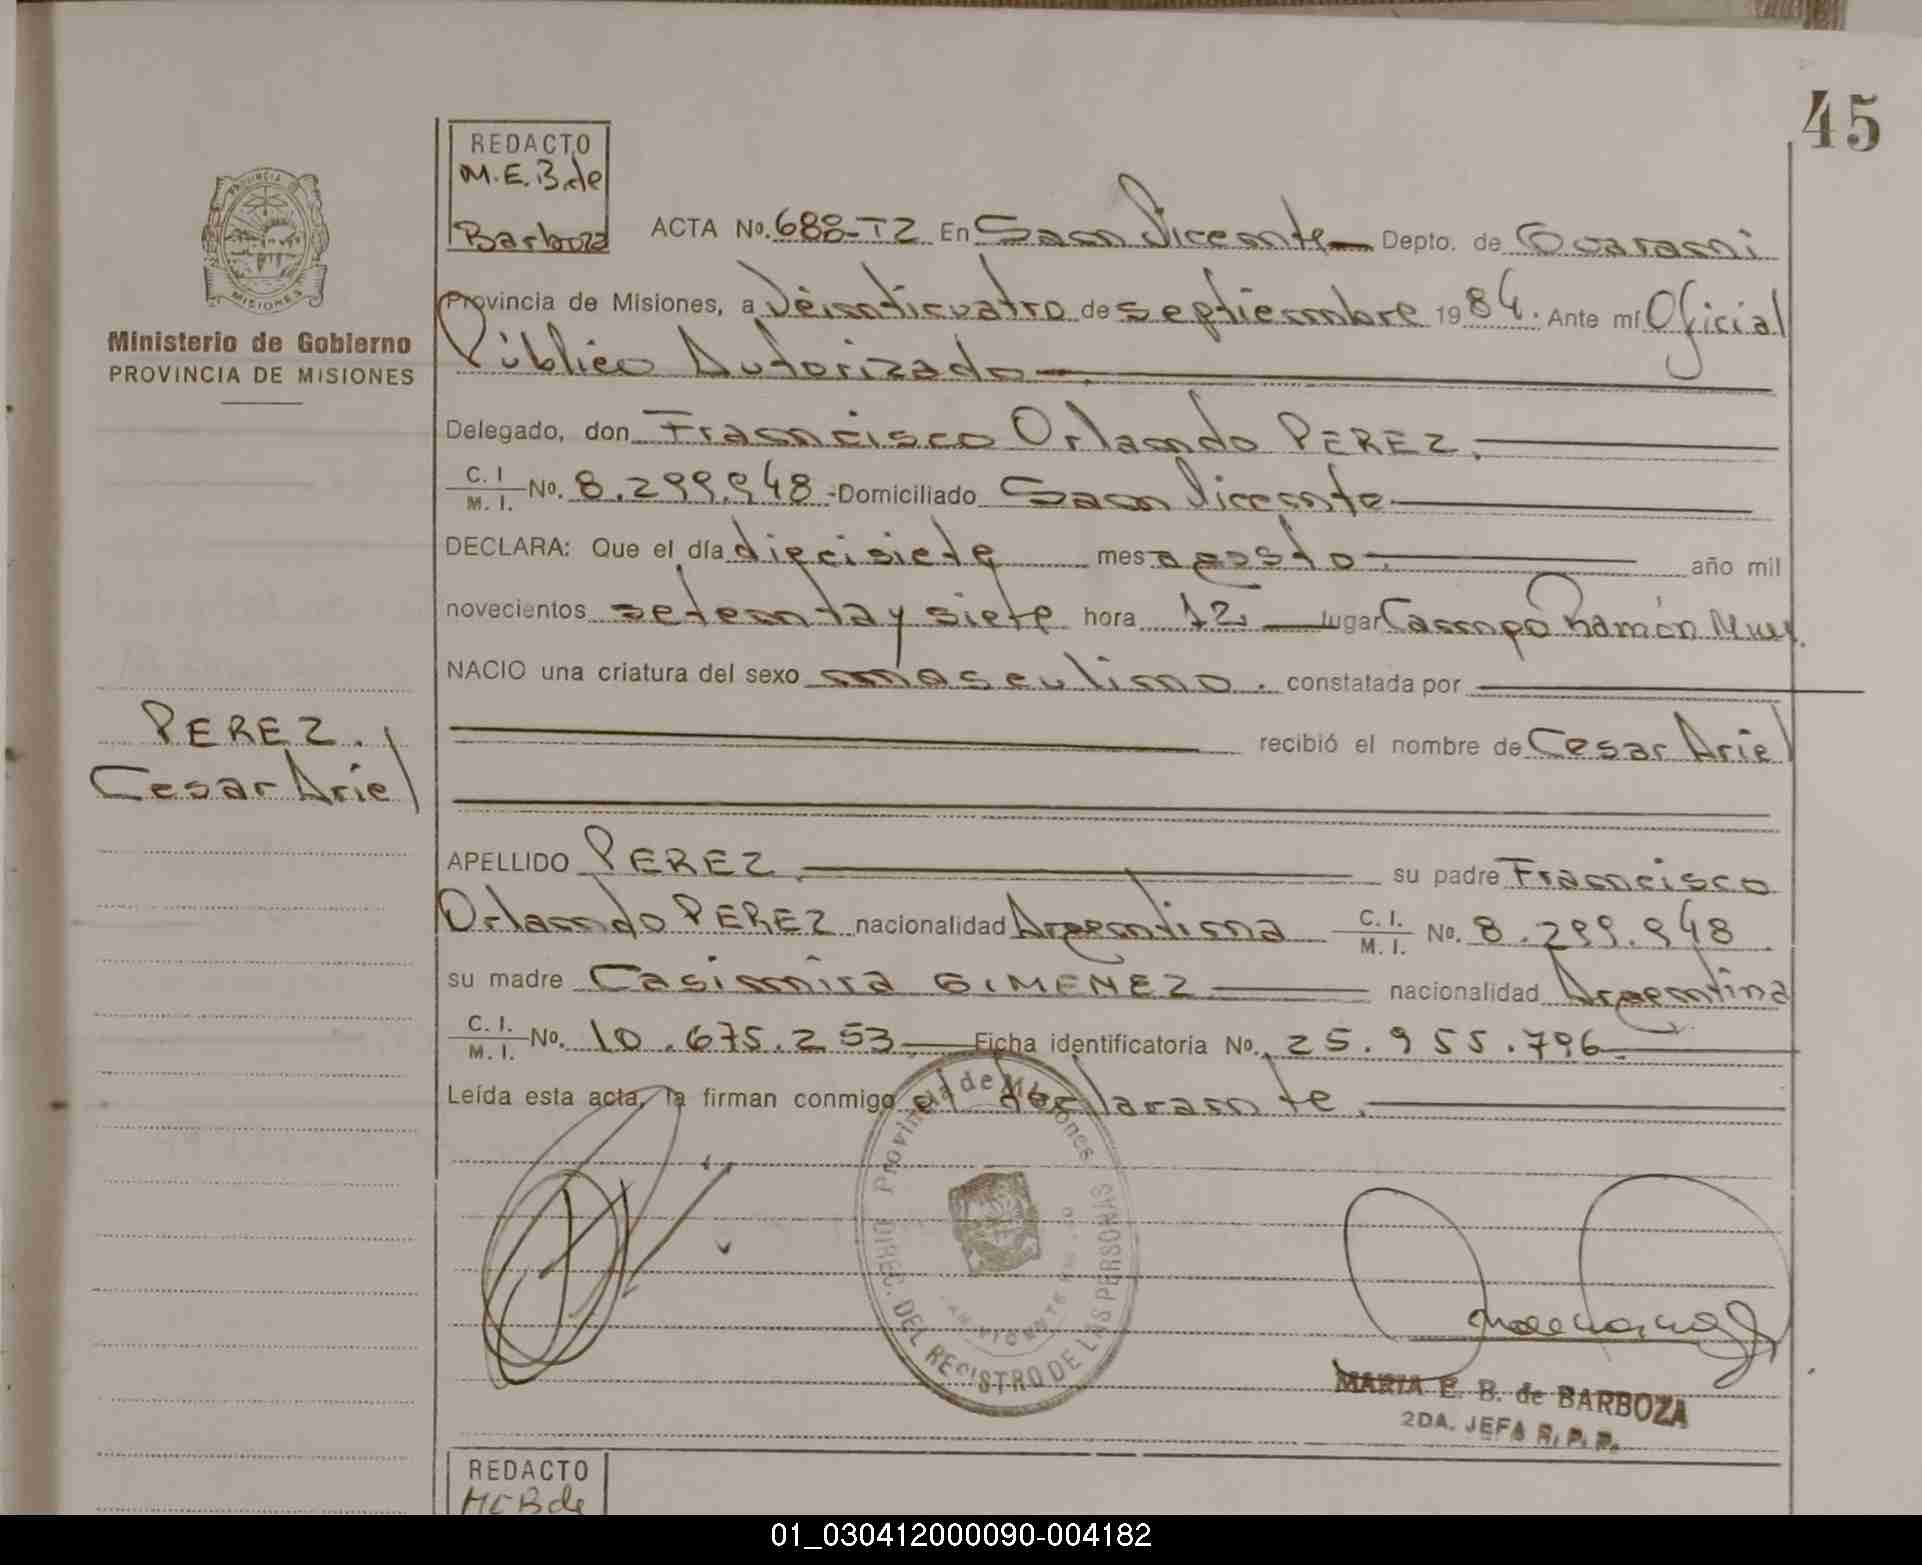 45
REDACTO
M.E.B.de
Barboza
PROVINCIA DE
MISIONES
Ministerio de Gobierno
PROVINCIA DE MISIONES
ACTA No. 688-T2 En San Vicente Depto. de Guarani
Provincia de Misiones, a Veinticuatro de septiembre 1984. Ante mí Oficial
Público Autorizado
Delegado, don Francisco Orlando PEREZ.
C. I. / M. I. No. 8.299.948 - Domiciliado San Vicente
DECLARA: Que el día diecisiete mes agosto. año mil
novecientos setenta y siete hora 12 lugar Campo Ramón Mnes.
NACIO una criatura del sexo masculino. constatada por
recibió el nombre de Cesar Ariel
PEREZ.
Cesar Ariel
APELLIDO PEREZ. su padre Francisco
Orlando PEREZ nacionalidad Argentina C. I. / M. I. No. 8.299.948
su madre Casimira GIMENEZ nacionalidad Argentina
C. I. / M. I. No. 10.675.253 Ficha identificatoria No. 25.955.796
Leída esta acta, la firman conmigo el declarante.
Provincia de Misiones
DIREC. DEL REGISTRO DE LAS PERSONAS
SAN VICENTE
MARIA E. B. de BARBOZA
2DA. JEFA R. P. P.
REDACTO
01_030412000090-004182